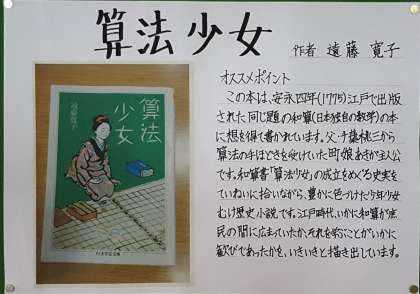 算法少女 作者 遠藤 寛子
オススメポイント
この本は、安永四年(1775)江戸で出版
された同じ題の和算(日本独自の数学)の本
に想を得て書かれています。父・千葉桃三から
算法の手ほどきを受けていた町娘あきが主人公
です。和算書「算法少女」の成立をめぐる史実を
ていねいに拾いながら、豊かに色づけた少年少女
むけ歴史小説です。江戸時代、いかに和算が庶
民の間に広まっていたか、それを学ぶことがいかに
歓びであったかを、いきいきと描き出しています。
算法
少女
遠藤寛子
ちくま学芸文庫